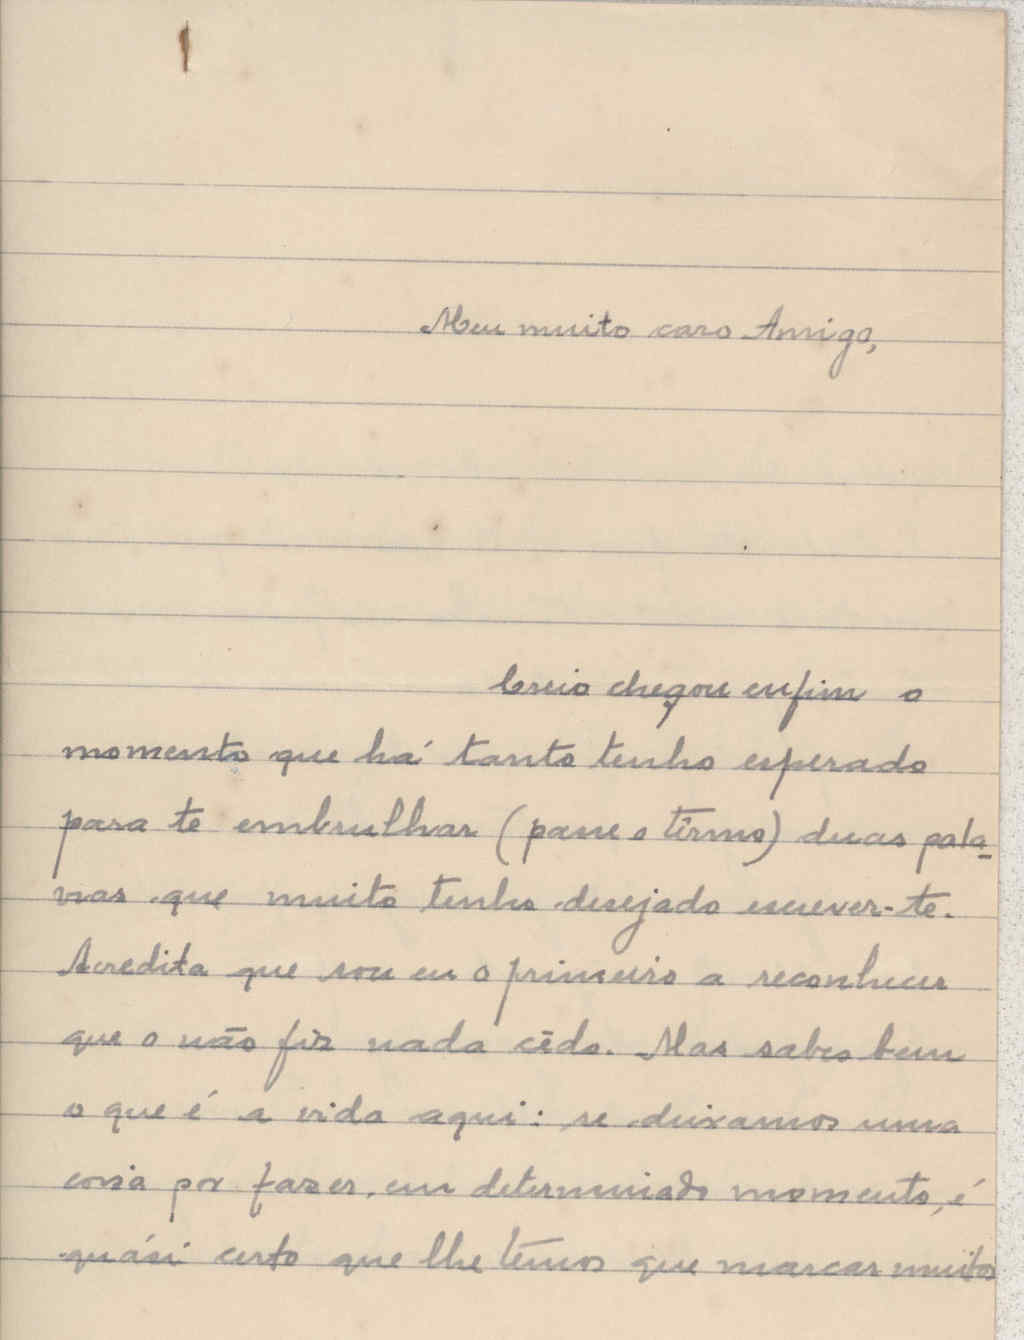 Meu muito caro Amigo,
Creio chegou enfim o
momento que há tanto tenho esperado
para te embrulhar (passe o têrmo) duas pala-
vras que muito tenho desejado escrever-te.
Acredita que sou eu o primeiro a reconhecer
que o não fiz nada cêdo. Mas sabes bem
o que é a vida aqui: se deixamos uma
coisa por fazer, em determinado momento, é
quási certo que lhe temos que marcar muitos